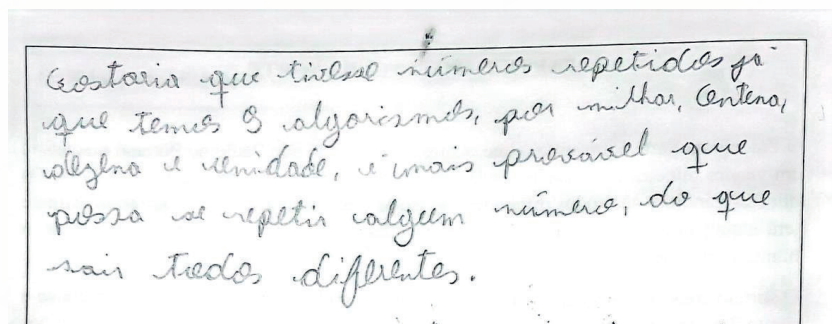 Gostaria que tivesse números repetidos já
que temos 9 algorismos, por milhar, Centena,
dezena e unidade, é mais provável que
possa se repetir algum número, do que
sair todos diferentes.